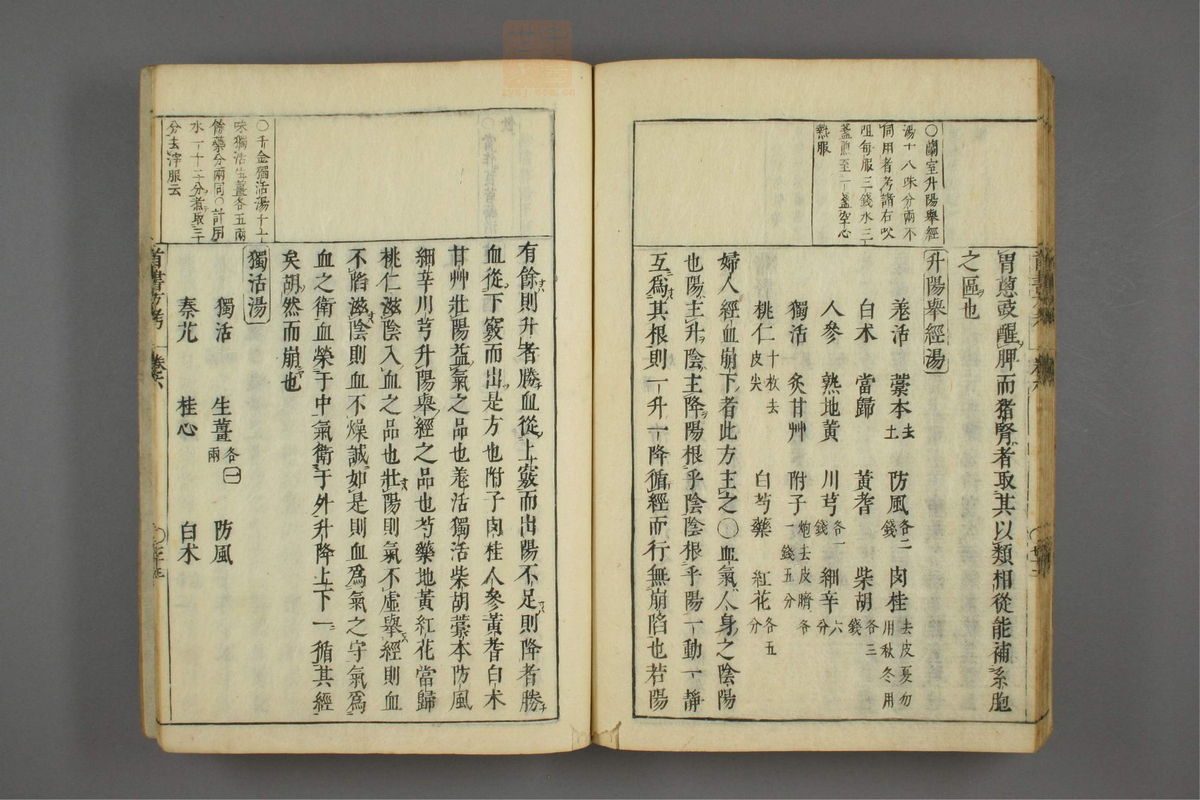 ○蘭室升陽舉經
湯十八味分兩不
同用者考諸右㕮
咀每服三錢水三
盞煎至一盞空心
熱服
胃葱豉醒脾而猪腎者取其以類相從能補系胞
之區也
升陽舉經湯
羗活 藁本去土 防風各二錢 肉桂去皮夏勿用秋冬用
白朮 當歸 黃耆 柴胡各三錢
人參 熟地黃 川芎各一錢 細辛六分
獨活 炙甘艸 附子炮去皮臍各一錢五分
桃仁十枚去皮尖 白芍藥 紅花各五分
婦人經血崩下者此方主之○血氣人身之陰陽
也陽主升陰主降陽根乎陰陰根乎陽一動一靜
互爲其根則一升一降循經而行無崩陷也若陽
有餘則升者勝血從上竅而出陽不足則降者勝
血從下竅而出是方也附子肉桂人參黃耆白朮
甘艸壯陽益氣之品也羗活獨活柴胡藁本防風
細辛川芎升陽舉經之品也芍藥地黃紅花當歸
桃仁滋陰入血之品也壯陽則氣不虛舉經則血
不陷滋陰則血不燥誠如是則血爲氣之守氣爲
血之衛血榮于中氣衛于外升降上下一循其經
矣胡然而崩也
○千金獨活湯十七
味獨活生薑各五兩
餘藥分兩同○計用
水一十二分煮取三十
分去滓服云
獨活湯
獨活 生薑各二兩 防風
秦艽 桂心 白朮
首書方考